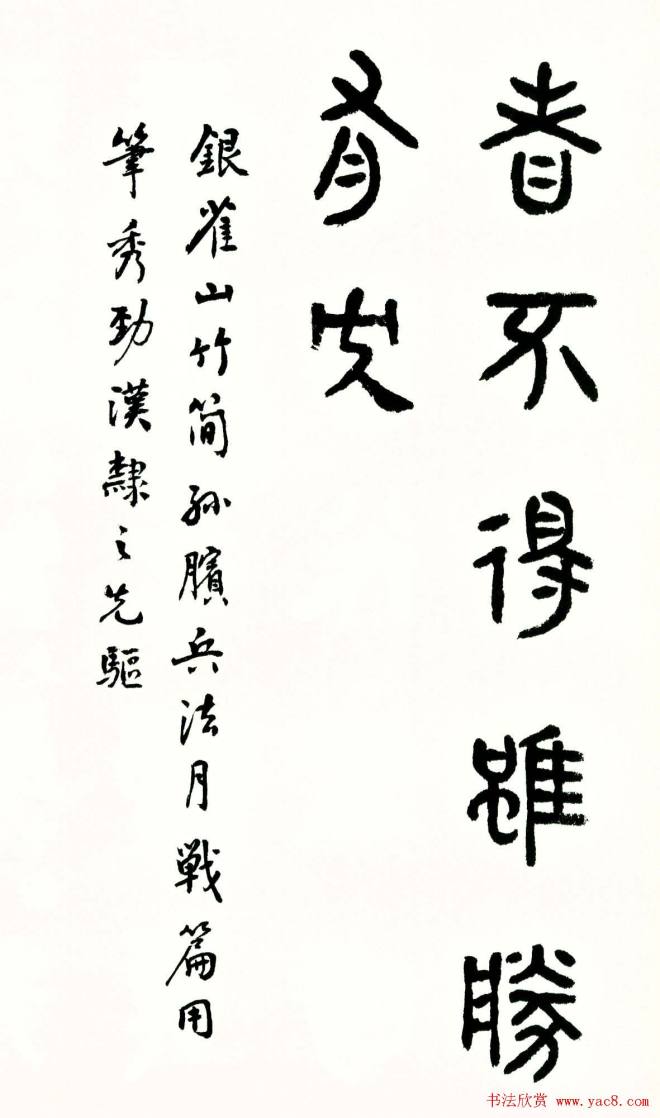 者不得雖勝
有央
銀雀山竹簡孫臏兵法月戰篇用
筆秀勁漢隸之先驅
书法欣赏 www.yac8.com